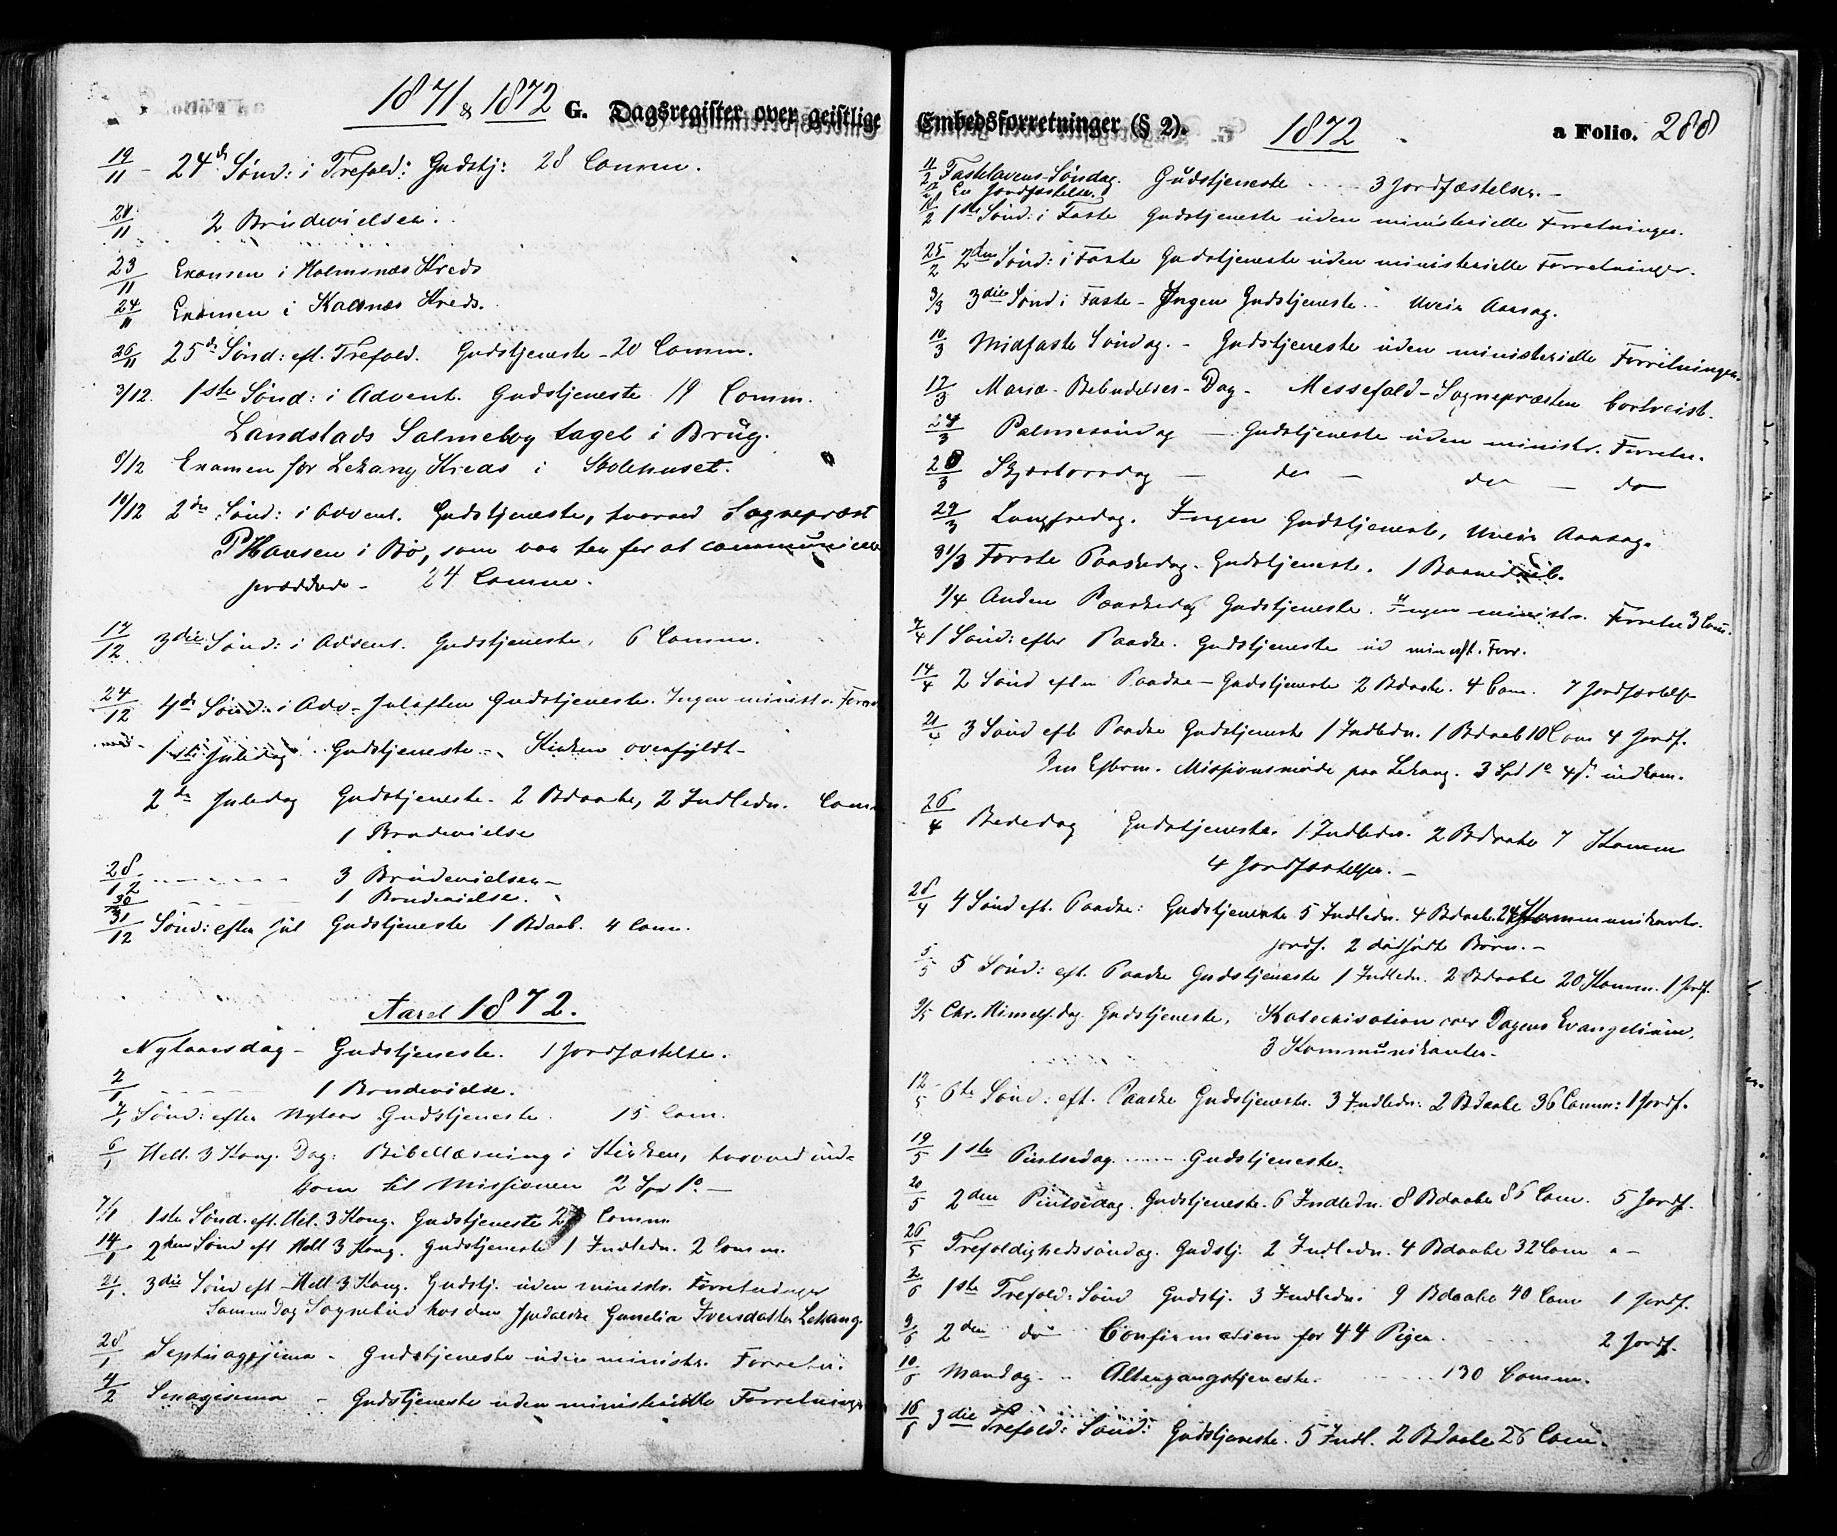 1871 & 1872 G. Dagsregister over geistlige
19/11 - 24de Sønd: i Trefold: Gudstj: 28 Comm.
21/11 2 Brudevielser.
23/11 Examen i Holmsnæs Kreds
24/11 Examen i Kalsnæs Kreds.
26/11 25de Sønd: eft. Trefold. Gudstjeneste - 20 Comm.
3/12. 1ste Sønd: i Advent. Gudstjeneste 19 Comm.
Landstads Salmebog taget i Brug.
8/12 Examen for Lekang Kreds i Skolehuset.
10/12 2den Sønd: i Advent. Gudstjeneste, hvorved Sognepræst
P Hansen i Bø, som var her for at communicere
prædikede - 24 Comm.
17/12 3die Sønd: i Advent. Gudstjeneste, 6 Comm.
24/12 4de Sønd: i Adv - Juleaften Gudstjeneste. Ingen ministr. Forr
1ste Juledag Gudstjeneste - Kirken overfyldt -
2den Juledag Gudstjeneste. 2 Bdaabe, 2 Indledn. Com
1 Brudevielse
28/12 - - - - - 3 Brudevielser -
30/12 - - - - 1 Brudevielse.
31/12 Sønd: efter Jul Gudstjeneste 1 Bdaab. 4 Com.
Aaret 1872.
Nytaarsdag - Gudstjeneste. 1 Jordfæstelse.
2/1 - - - - 1 Brudevielse.
Sønd: efter Nytaar Gudstjeneste. 15 Com.
6/1 Hell. 3 Kong. Dag: Bibellæsning i Kirken, hvorved ind-
kom til Missionen 2 Spd 1o -
7/1 1ste Sønd. eft. Hel. 3 Kong. Gudstjeneste Comm.
14/1 2den Sønd eft Hell 3 Kong. Gudstjeneste 1 Indledn. 2 Comm.
21/1 3die Sønd eft Hell 3 Kong. Gudstj. uden ministr. Forretninger
Samme Dag Sognebud hos den Gunelia Iversdatter Lekang.
28/1 Septuagesima - Gudstjeneste uden ministr. Forretn.
4/2 Sexagesima - Gudstjeneste uden ministerielle Forretninge
Embedsforretninger (§ 2). 1872 a Folio. 288
11/2 Fastelavens-Søndag. Gudstjeneste - - - 3 Jordfæstelser. -
En Jordfæstelse.
18/2 1ste Sønd: i Faste Gudstjeneste uden ministerielle Forretninger.
25/2 2den Sønd: i Faste Gudstjeneste uden ministerielle Forretninger.
3/3 3die Sønd i Faste - Ingen Gudstjeneste. - Uveir Aarsag.
10/3 Midfaste Søndag. - Gudstjeneste uden ministerielle Forretninger.
17/3 Mariæ-Bebudelses-Dag - Messefald - Sognepræsten bortreist.
24/3 Palmesøndag - Gudstjeneste uden ministr. Forretn.
28/3 Skjærtorsdag - do - do - do
29/3 Langfredag. Ingen Gudstjeneste, Uveir Aarsag.
31/3 Første Paaskedag. Gudstjeneste. 1 Barnedaab.
1/4 Anden Paaskedag Gudstjeneste. Ingen ministr. Forretn 3 Com.
7/4 1 Sønd: efter Paaske. Gudstjeneste ud minist. Forr.
14/4 2 Sønd efter Paaske - Gudstjeneste 2 Bdaabe. 4 Com. 7 Jordfæstelse
21/4 3 Sønd eft Paaske Gudstjeneste 1 Indledn. 1 Bdaab 10 Com 4 Jordf.
Om Efterm. Missionsmøde paa Lekang. 3 Spd 1o 4s. indkom.
26/4 Bededag Gudstjeneste. 1 Indledn. 2 Bdaabe 7 Komm
4 Jordfæstelser. -
28/4 4 Sønd eft. Paaske: Gudstjeneste 5 Indledn. 4 Bdaabe 24 Kommunikanter.
Jordf. 2 dødfødte Børn. -
5/5 5 Sønd: eft. Paaske Gudstjeneste 1 Indledn. 2 Bdaabe 20 Komm. 1 Jordf.
9/5 Chr. Himelf. dag Gudstjeneste, Katechisation over Dagens Evangelium,
3 Kommunikanter.
12/5 6te Sønd: eft. Paaske Gudstjeneste. 3 Indledn: 2 Bdaabe 36 Comm: 1 Jordf.
19/5 1ste Pintsedag - - - Gudstjeneste.
20/5 2den Pintsedag. Gudstjeneste. 6 Indledn. 8 Bdaabe 86 Com. 5 Jordf.
26/5 Trefoldighedssøndag. Gudstj. 2 Indledn. 4 Bdaabe 32 Com
2/6 1ste Trefold: Sønd Gudstj. 3 Indledn. 9 Bdaabe 40 Com 1 Jordf.
9/6 2den do Confirmation for 44 Piger. 2 Jordf.
10/6 Mandag. - Altergangstjeneste. - - - 130 Comm.
16/6 3die Trefold: Sønd: Gudstjeneste. 5 Indl. 2 Bdaabe 26 Com.